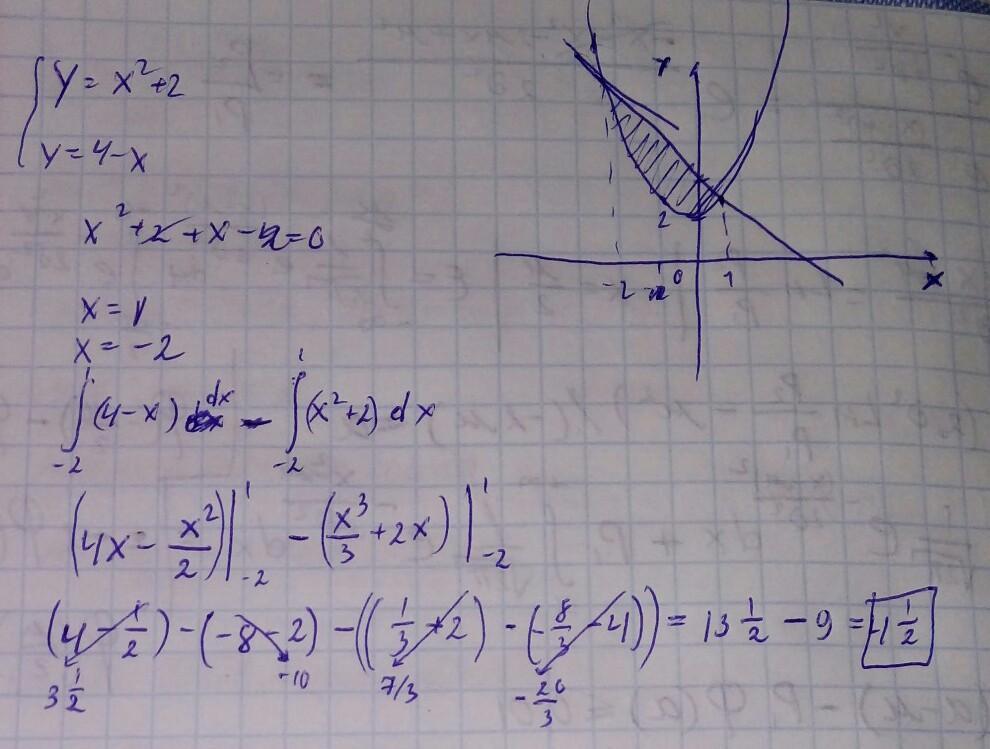 y = x² + 2
y = 4 - x
x² + 2 + x - 4 = 0
x = 1
x = -2
∫₋₂¹ (4 - x) dx - ∫₋₂¹ (x² + 2) dx
(4x - x²/2)|₋₂¹ - (x³/3 + 2x)|₋₂¹
(4 - 1/2) - (-8 - 2) - ((1/3 + 2) - (-8/3 - 4)) = 13 1/2 - 9 = 4 1/2
3 1/2
-10
7/3
-20/3
y
2
-2
0
1
x